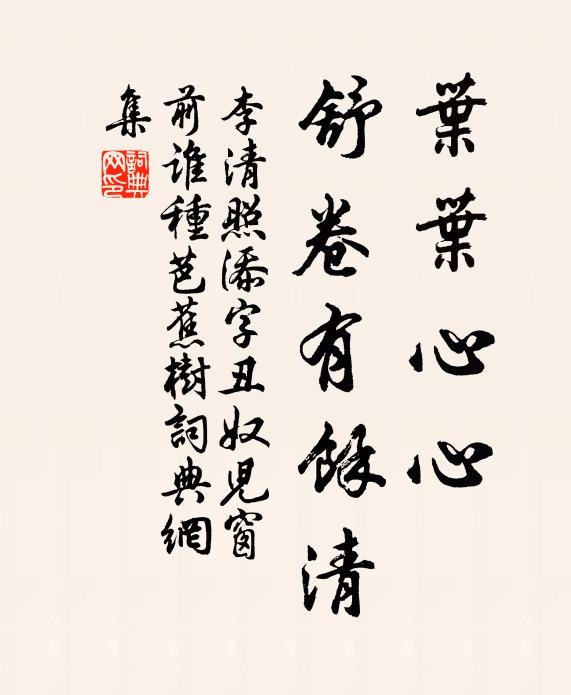 葉葉心心
舒卷有餘清
李清照添字丑奴兒窗
前誰種芭蕉樹詞典網
集
詞典
网印